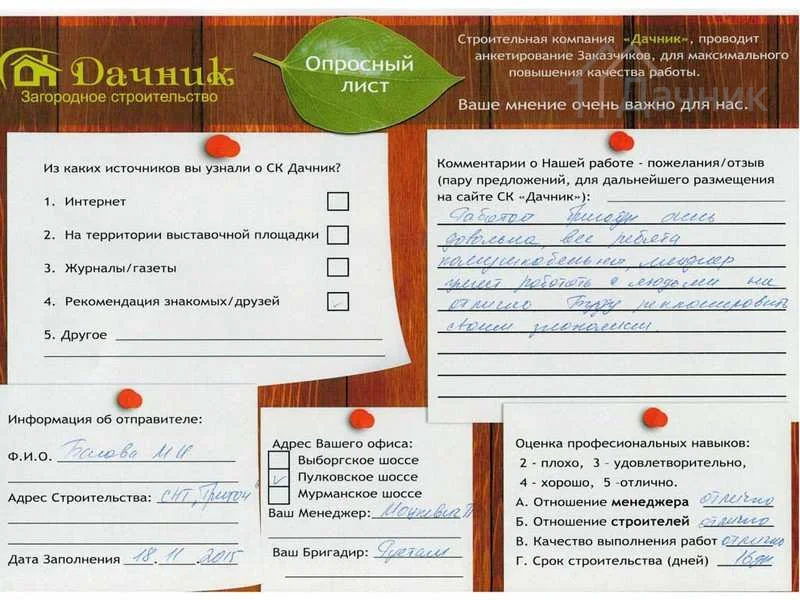 Дачник
Загородное строительство
Опросный
лист
Строительная компания «Дачник», проводит
анкетирование Заказчиков, для максимального
повышения качества работы.
Ваше мнение очень важно для нас.
Дачник
Из каких источников вы узнали о СК Дачник?
1. Интернет
2. На территории выставочной площадки
3. Журналы/газеты
4. Рекомендация знакомых/друзей
5. Другое
Комментарии о Нашей работе - пожелания/отзыв
(пару предложений, для дальнейшего размещения
на сайте СК «Дачник»):
Работой бригады очень
довольна, все ребята
менеджер
умеет работать с людьми на
отлично Буду
своим
Информация об отправителе:
Ф.И.О.
Адрес Строительства: СНТ,
Дата Заполнения 18.11.2015
Адрес Вашего офиса:
Выборгское шоссе
Пулковское шоссе
Мурманское шоссе
Ваш Менеджер:
Ваш Бригадир:
Оценка профессиональных навыков:
2 - плохо, 3 - удовлетворительно,
4 - хорошо, 5 -отлично.
А. Отношение менеджера отлично
Б. Отношение строителей отлично
В. Качество выполнения работ отлично
Г. Срок строительства (дней) 16дн